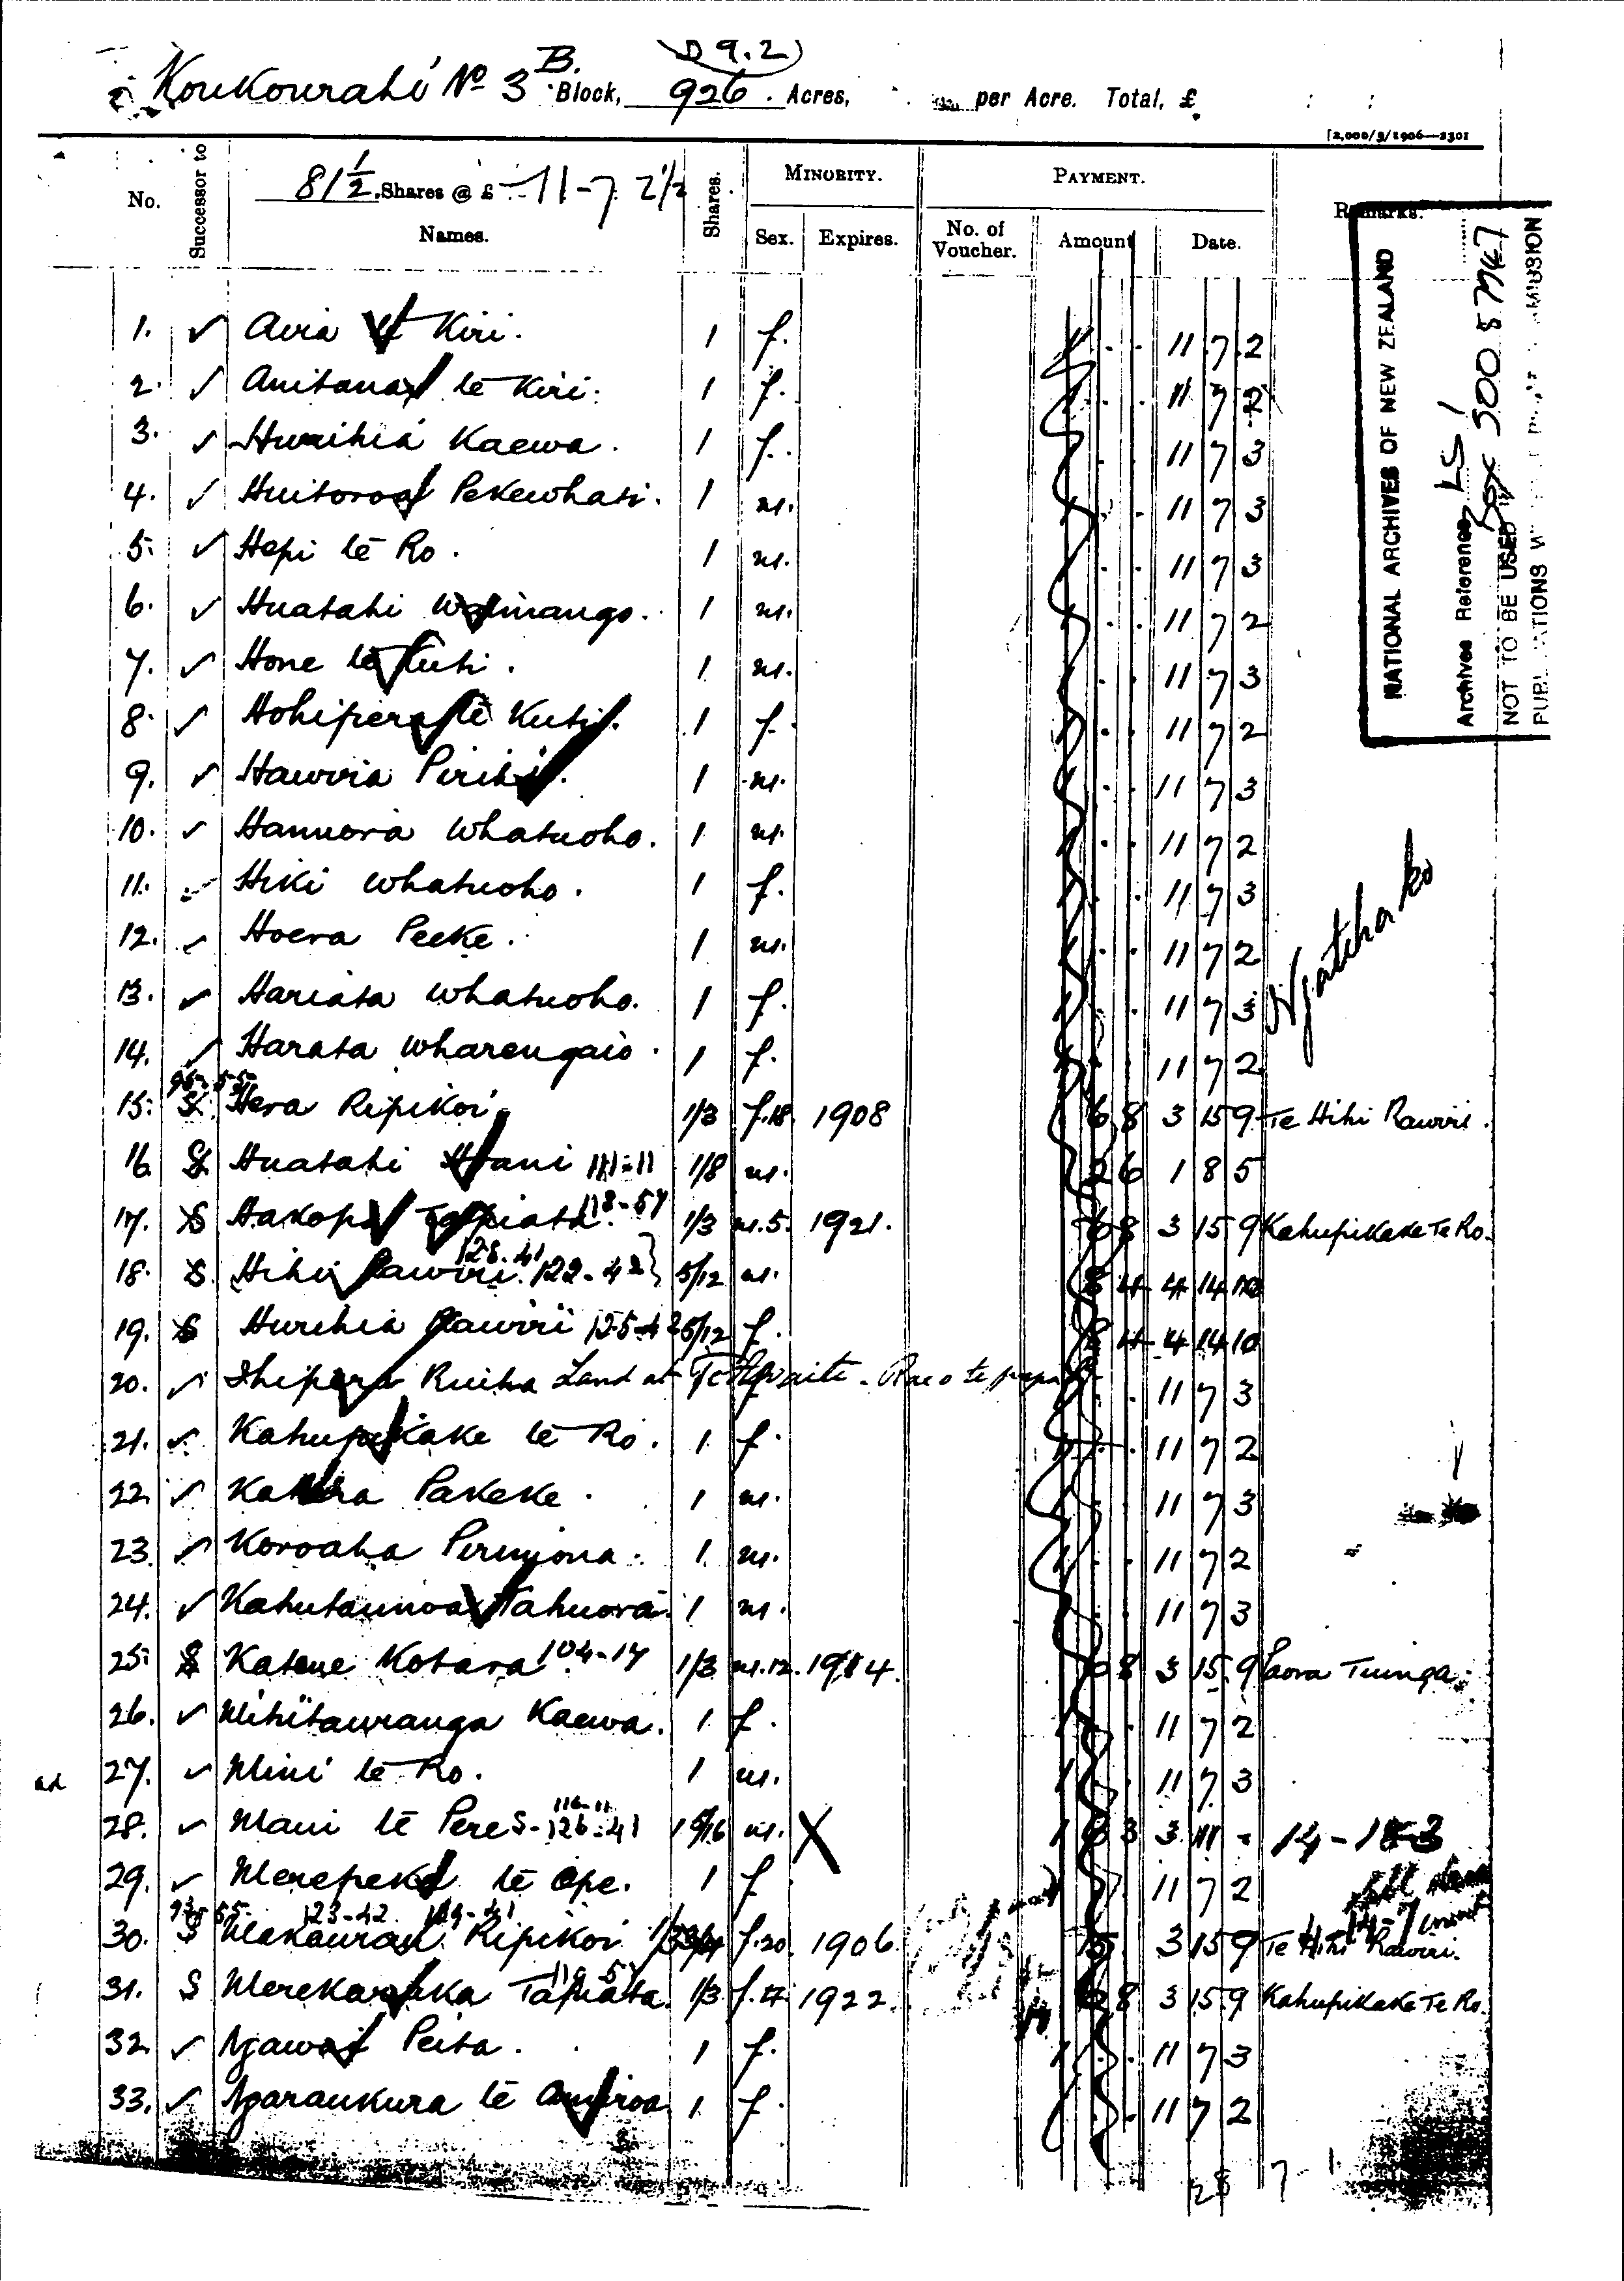 D 9.2
Koukourahi No 3 B. Block, 926. Acres, per Acre. Total, £ : :
[2,000/9/1906—3301
No. Successor to 81½ Shares @ £ 11-7 2½ Names. Shares. MINORITY. Sex. Expires. PAYMENT. No. of Voucher. Amount Date. Remarks.
NATIONAL ARCHIVES OF NEW ZEALAND
Archives Reference LS 1
Box 500
NOT TO BE USED IN
1. ✓ Aria te Kiri. 1 f. 11 7 2
2. ✓ Anitana te Kiri. 1 f. 11 7 2
3. ✓ Hurihia Kaewa. 1 f. 11 7 3
4. ✓ Huitoroa Pekewhati. 1 m. 11 7 3
5. ✓ Hepi te Ro. 1 m. 11 7 3
6. ✓ Huatahi Waimango. 1 m. 11 7 2
7. ✓ Hone te Kuti. 1 m. 11 7 3
8. ✓ Hohipera te Kuti. 1 f. 11 7 2
9. ✓ Hawira Pirihi. 1 m. 11 7 3
10. ✓ Hamuera Whatuoho. 1 m. 11 7 2
11. ✓ Hiki Whatuoho. 1 f. 11 7 3
12. ✓ Hoera Peeke. 1 m. 11 7 2
13. ✓ Hariata Whatuoho. 1 f. 11 7 3
Ngatihako
14. ✓ Harata Wharengaio. 1 f. 11 7 2
15. S Hera Ripikoi 1/3 f.18. 1908 6 8 3 15 9 Te Hihi Rawiri.
16. S Huatahi Hani 111-11 1/8 m. 2 6 1 8 5
17. S Hakopa Tapiata 118-57 1/3 m.5. 1921. 6 8 3 15 9 Kahupikake Te Ro.
18. S Hihi Rawiri 128.41 122-42 5/12 m. 8 4 4 14 10
19. S Hurihia Rawiri 125-42 5/12 f. 8 4 4 14 10
20. ✓ Ihipera Ruiha Land at 11 7 3
21. ✓ Kahupikake te Ro. 1 f. 11 7 2
22. ✓ Pakeke. 1 m. 11 7 3
23. ✓ Koroaha 1 m. 11 7 2
24. ✓ Kahutaunoa Tahuora. 1 m. 11 7 3
25. S Katene Kotara 104-17 1/3 m.12. 1914. 6 8 3 15 9 Taora Tuinga.
26. ✓ Mihitauranga Kaewa. 1 f. 11 7 2
27. ✓ Mini te Ro. 1 m. 11 7 3
28. ✓ Maui te Pere S- 116-11 126-41 1 5/16 m. X 1 6 3 3 11 -
29. ✓ Merepeka te Ope. 1 f. 11 7 2
30. S Makaurau Ripikoi 123-42 f.20. 1906. 3 15 9 Te Hihi Rawiri.
31. S Merekaraka Tapiata 1/3 f.4. 1922. 6 8 3 15 9 Kahupikake Te Ro.
32. ✓ Ngawai Peita. 1 f. 11 7 3
33. ✓ Ngaraukura te Amiroa 1 f. 11 7 2
28 7 - 1